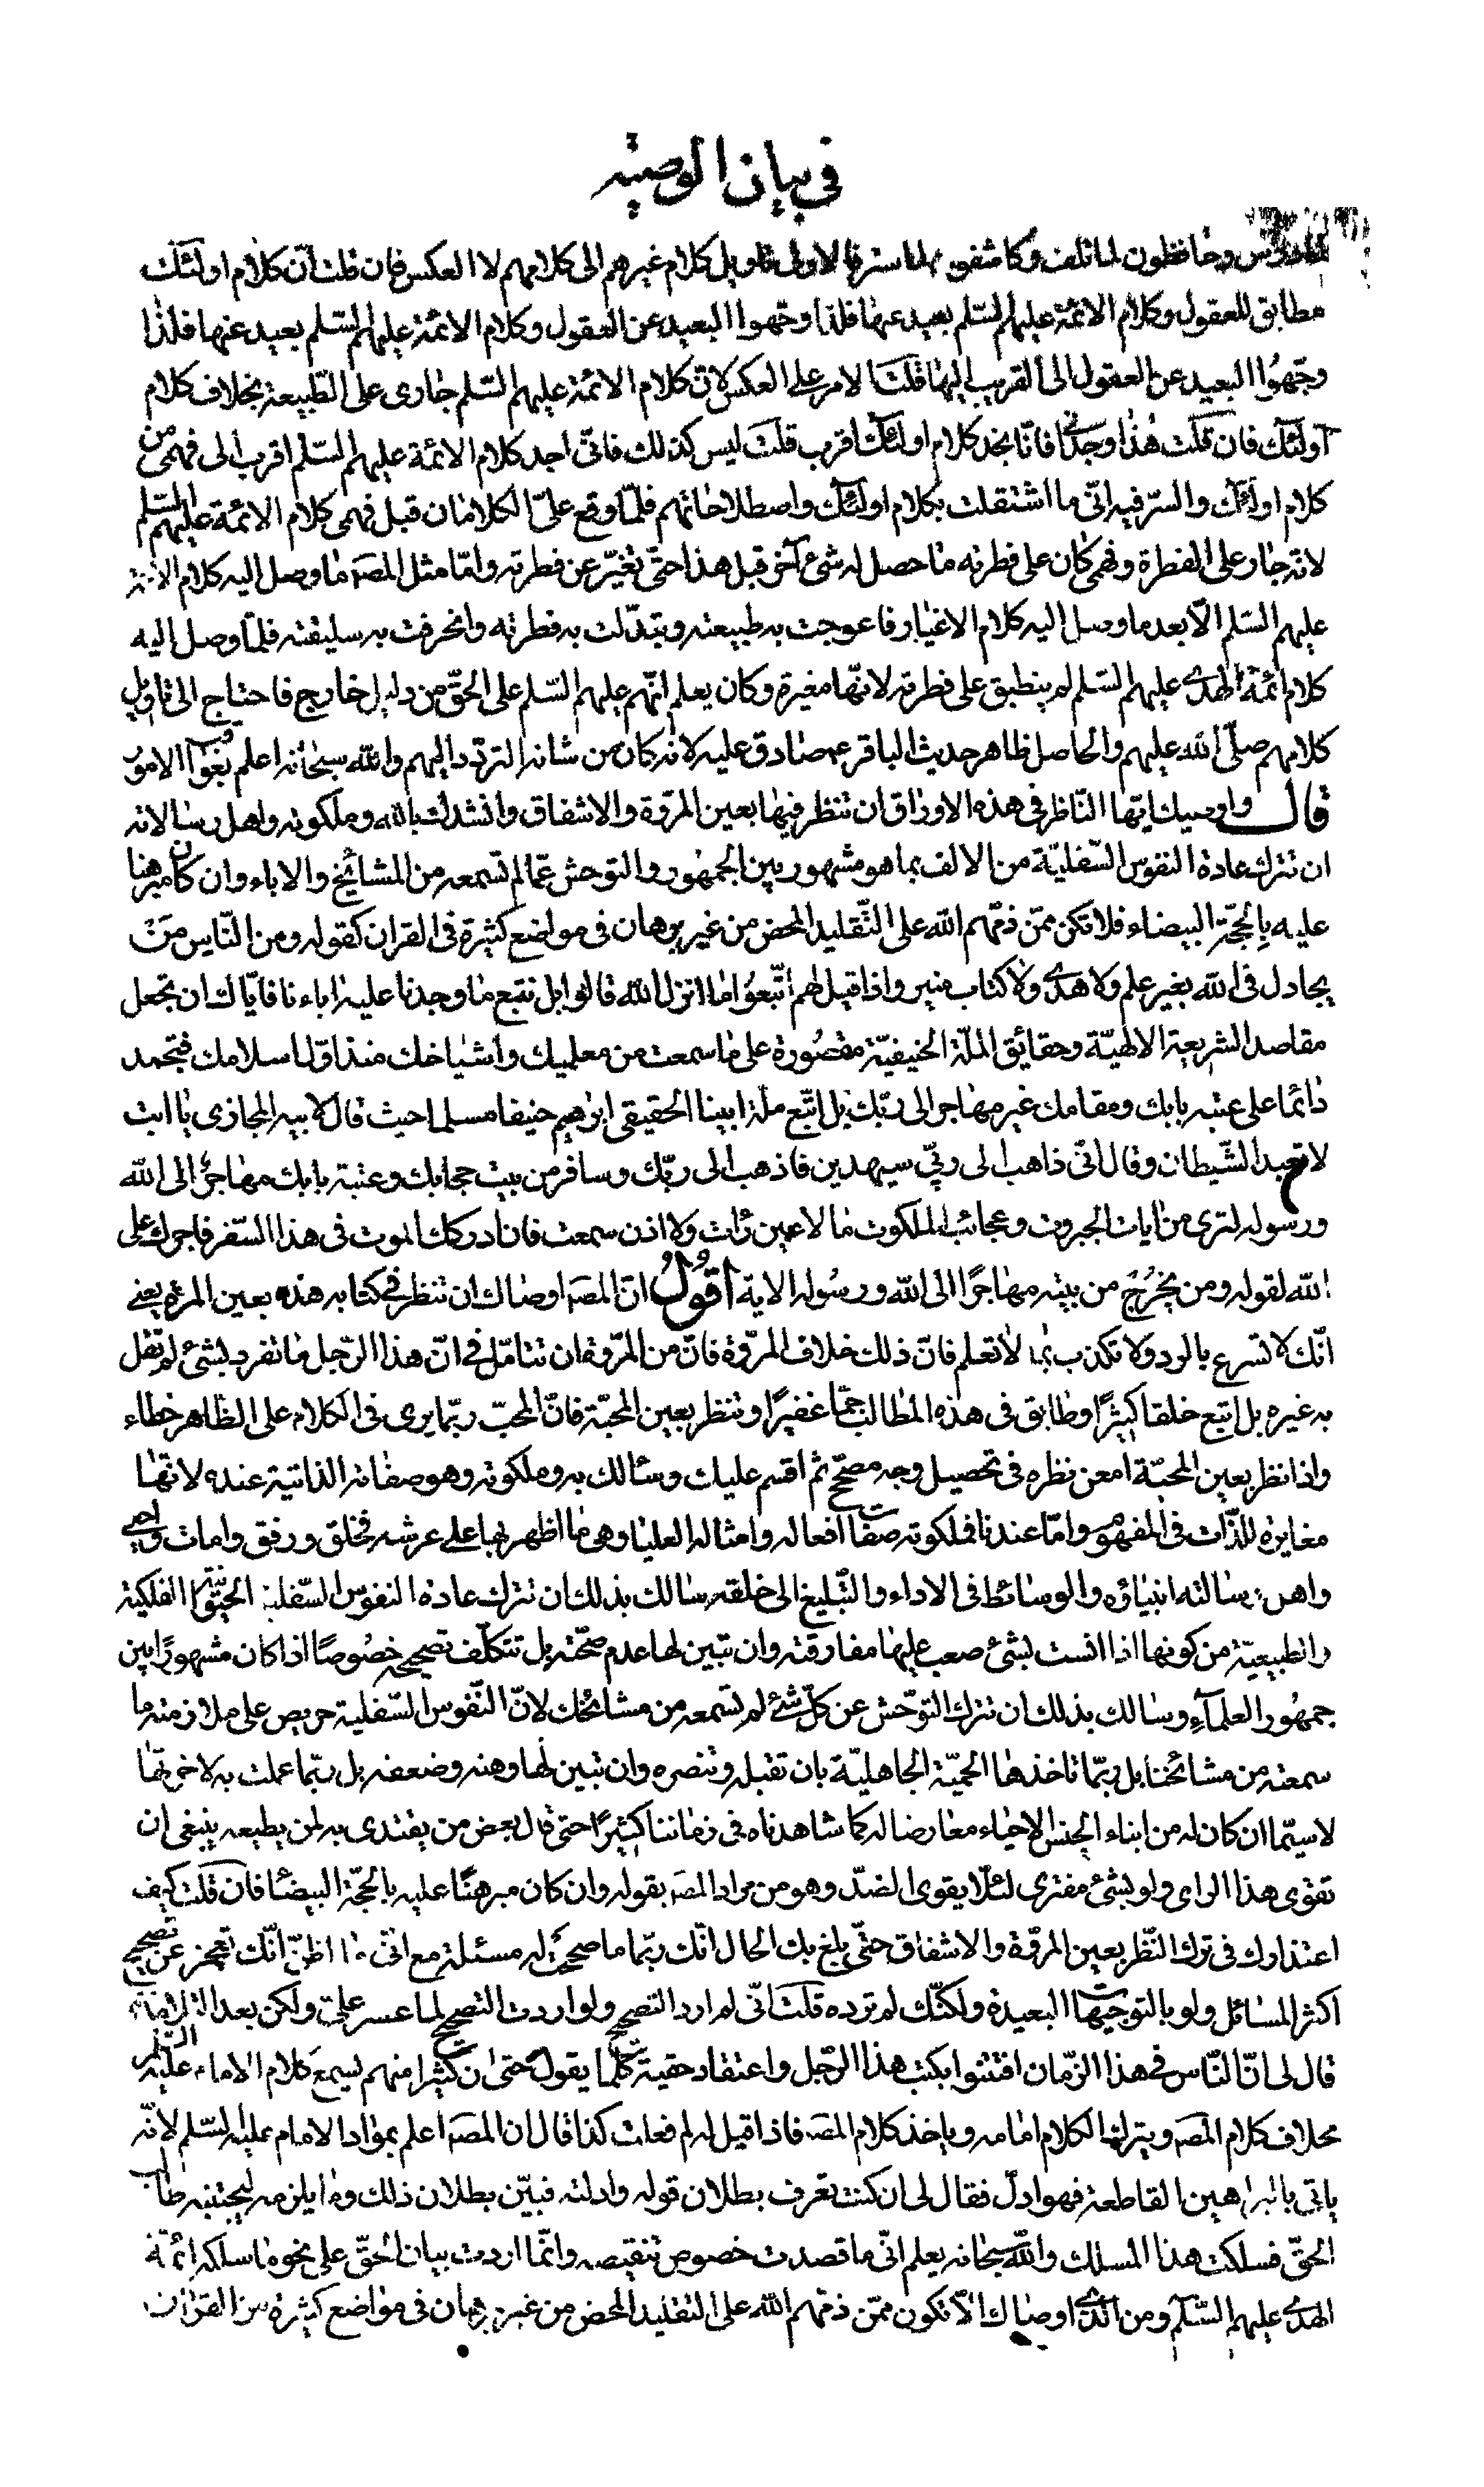 في بيان الوصية
وحافظون لما تلف وكاشفون لما ستر فالاولى تاويل كلام غيرهم الى كلامهم لا العكس فان قلت ان كلام اولئك
مطابق للعقول وكلام الائمة عليهم السلم بعيد عنها فلذا وجهوا البعيد عن العقول وكلام الائمة عليهم السلم بعيد عنها فلذا
وجهوا البعيد عن العقول الى القريب اليها قلنا الامر على العكس لان كلام الائمة عليهم السلم جارى على الطبيعة بخلاف كلام
اولئك فان قلت هذا وجدانى فانا نجد كلام اولئك اقرب قلت ليس كذلك فانى اجد كلام الائمة عليهم السلم اقرب الى فهمى من
كلام اولئك والسر فيه انى ما اشتغلت بكلام اولئك واصطلاحاتهم فلما وقع على الكلامان قبل فهمى كلام الائمة عليهم السلم
لانه جار على الفطرة وفهمى كان على فطرته ما حصل له شىء آخر قبل هذا حتى تغير عن فطرته واما مثل المص ما وصل اليه كلام الائمة
عليهم السلم الا بعد ما وصل اليه كلام الاغيار فاعوجت به طبيعته وتبدلت به فطرته وانحرفت به سليقته فلما وصل اليه
كلام ائمة الهدى عليهم السلم لم ينطبق على فطرته لانها مغيرة وكان يعلم انهم عليهم السلم على الحق من دليل خارج فاحتاج الى تاويل
كلامهم صلى الله عليهم والحاصل ظاهر حديث الباقر ع صادق عليه لانه كان من شانه التردد اليهم والله سبحانه اعلم بعواقب الامور
قال واوصيك ايها الناظر فى هذه الاوراق ان تنظر فيها بعين المروة والاشفاق وانشدك بالله وملكوته واهل رسالاته
ان تترك عادة النفوس السفلية من الالف بما هو مشهور بين الجمهور والتوحش عما لم تسمعه من المشائخ والاباء وان كان مبرهنا
عليه بالحجة البيضاء فلا تكن ممن ذمهم الله على التقليد المحض من غير برهان فى مواضع كثيرة فى القران كقوله ومن الناس من
يجادل فى الله بغير علم ولا هدى ولا كتاب منير واذا قيل لهم اتبعوا ما انزل الله قالوا بل نتبع ما وجدنا عليه اباءنا فاياك ان تجعل
مقاصد الشريعة الالهية وحقائق الملة الحنيفية مقصورة على ما سمعت من معلميك واشياخك منذ اول اسلامك فتجمد
دائما على عتبه بابك ومقامك غير مهاجر الى ربك بل اتبع ملة ابينا الحقيقى ابرهيم حنيفا مسلما حيث قال لابيه المجازى يا ابت
لا تعبد الشيطان وقال انى ذاهب الى ربى سيهدين فاذهب الى ربك وسافر من بيت حجابك وعتبة بابك مهاجرا الى الله
ورسوله لترى من ايات الجبروت وعجائب الملكوت ما لا عين رات ولا اذن سمعت فان ادركك الموت فى هذا السفر فاجرك على
الله لقوله ومن يخرج من بيته مهاجرا الى الله ورسوله الاية اقول ان المص اوصاك ان تنظر فى كتابه هذه بعين المروة يعنى
انك لا تسرع بالرد ولا تكذب بما لا تعلم فان ذلك خلاف المروة فان من المروة ان تتامل فى ان هذا الرجل ما تفرد بشىء لم تقل
به غيره بل اتبع خلقا كثيرا وطابق فى هذه المطالب جما غفيرا وتنظر بعين المحبة فان المحب ربما يرى فى الكلام على الظاهر خطاء
واذا نظر بعين المحبة امعن نظره فى تحصيل وجه مصحح ثم اقسم عليك وسالك به وملكوته وهو صفاته الذاتية عنده لانها
مغايرة للذات فى المفهوم واما عندنا فملكوته صفات افعاله وامثاله العليا وهى ما اظهر بها على عرشه فخلق ورزق وامات واحيى
واهل رسالته انبياؤه والوسائط فى الاداء والتبليغ الى خلقه سالك بذلك ان تترك عادة النفوس السفلية الفلكية
والطبيعية من كونها اذا انست بشىء صعب عليها مفارقته وان تبين لها عدم صحته بل تتكلف تصحيحه خصوصا اذا كان مشهورا بين
جمهور العلماء وسالك بذلك ان تترك التوحش عن كل شىء لم تسمعه من مشائخك لان النفوس السفلية حريص على ملازمته ما
سمعته من مشائخنا بل ربما تاخذها الحمية الجاهلية بان تقبله وتنصره وان تبين لها وهنه وضعفه بل ربما عملت به لاخرتها
لاسيما ان كان له من ابناء الجنس الاحياء معارضا له كما شاهدناه فى زماننا كثيرا حتى قال بعض من يقتدى به لمن يطيعه ينبغى ان
تقوى هذا الراى ولو بشىء مفترى لئلا يقوى الضد وهو من مراد المص بقوله وان كان مبرهنا عليه بالحجة البيضا فان قلت كيف
اعتذارك فى ترك النظر بعين المروة والاشفاق حتى بلغ بك الحال انك ربما ما صححت له مسئلة مع انى ما اظن انك تعجز عن تصحيح
اكثر المسائل ولو بالتوجيهات البعيدة ولكنك لم ترده قلت انى لم ارد التصحيح ولو اردت التصحيح لما عسر على ولكن بعد
قال لى ان الناس فى هذا الزمان افتتنوا بكتب هذا الرجل واعتقاد حقية كلما يقول حتى ان كثيرا منهم ليسمع كلام الامام عليه السلم
بخلاف كلام المص ويترك الكلام امامه وياخذ كلام المص فاذا قيل له لم فعلت كذا قال ان المص اعلم بمراد الامام عليه السلم لانه
ياتى بالبراهين القاطعة فهو ادل فقال لى ان كنت تعرف بطلان قوله وادلته فبين بطلان ذلك وما يلزمه ليجتنبه طالب
الحق فسلكت هذا المسلك والله سبحانه يعلم انى ما قصدت خصوص تنقيصه وانما اردت بيان الحق على نحو ما سلكه ائمة
الهدى عليهم السلم ومن الذى اوصاك الا تكون ممن ذمهم الله على التقليد المحض من غير برهان فى مواضع كثيرة من القران